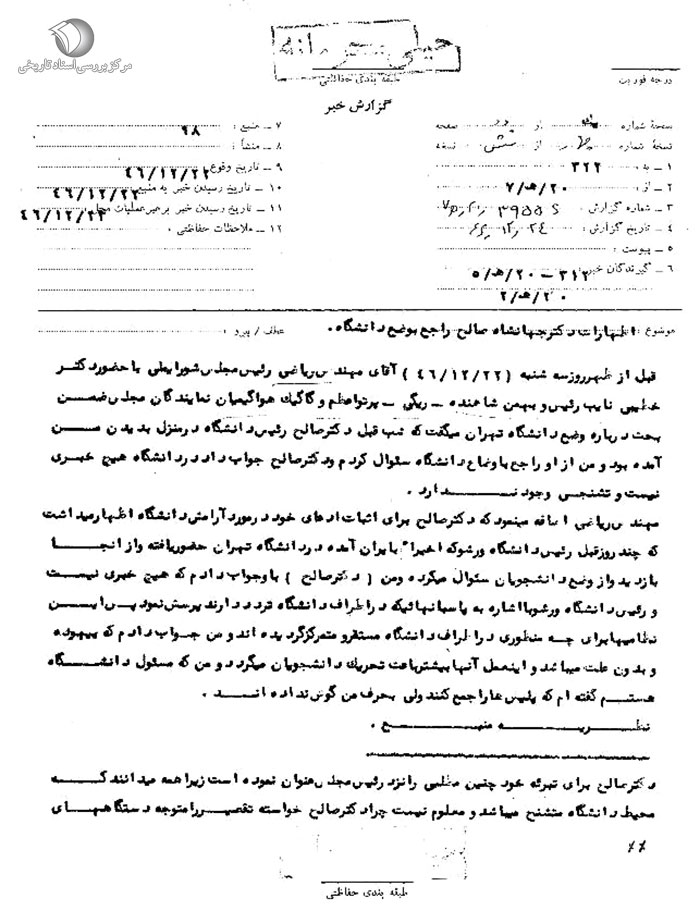 مرکز بررسی اسناد تاریخی
خیلی محرمانه
طبقه بندی حفاظتی
درجه فوریت
گزارش خبر
صفحه شماره یک از دو صفحه
نسخه شماره از شش نسخه
۱ – به : ۳۲۲
۲ – از : ۲۰/ه‍/۷
۳ – شماره گزارش :
۴ – تاریخ گزارش : ۴۶/۱۲/۲۴
۵ – پیوست :
۶ – گیرندگان خبر : ۳۱۲ – ۲۰/ه‍/۵
۲۰/ه‍/۲
۷ – منبع : ۶۸
۸ – منشأ :
۹ – تاریخ وقوع : ۴۶/۱۲/۲۲
۱۰ – تاریخ رسیدن خبر به منبع : ۴۶/۱۲/۲۲
۱۱ – تاریخ رسیدن خبر برهبر عملیات محل : ۴۶/۱۲/۲۲
۱۲ – ملاحظات حفاظتی :
موضوع : اظهارات دکتر جهانشاه صالح راجع بوضع دانشگاه .
عطف / پیرو :
قبل از ظهر روز سه شنبه ( ۴۶/۱۲/۲۲ ) آقای مهندس ریاضی رئیس مجلس شورایملی با حضور دکتر
خطیبی نایب رئیس و بهمن شاهنده – ریگی – پرتواعظم و گاگیک هواگیمیان نمایندگان مجلس ضمن
بحث درباره وضع دانشگاه تهران میگفت که شب قبل دکتر صالح رئیس دانشگاه در منزل بدیدن مــن
آمده بود و من از او راجع باوضاع دانشگاه سئوال کردم و دکتر صالح جواب داد در دانشگاه هیچ خبری
نیست و تشنجی وجود نــــدارد .
مهندس ریاضی اضافه مینمود که دکتر صالح برای اثبات ادعای خود در مورد آرامش دانشگاه اظهار میداشت
که چند روز قبل رئیس دانشگاه ورشو که اخیراً بایران آمده در دانشگاه تهران حضور یافته و از آنجـــا
بازدید و از وضع دانشجویان سئوال میکرده و من ( دکتر صالح ) باو جواب دادم که هیچ خبری نیست
و رئیس دانشگاه ورشو با اشاره به پاسبانهائیکه در اطراف دانشگاه تردد دارند پرسش نمود پس ایــن
نظامیها برای چه منظوری در اطراف دانشگاه مستقر و متمرکز گردیده اند و من جواب دادم که بیهوده
و بدون علت میباشد و اینعمل آنها بیشتر باعث تحریک دانشجویان میگردد و من که مسئول دانشــگاه
هستم گفته ام که پلیس ها را جمع کنند ولی بحرف من گوش نداده انــد .
نظریـــه منبـــع .
دکتر صالح برای تبرئه خود چنین مطلبی را نزد رئیس مجلس عنوان نموده است زیرا همه میدانند کــه
محیط دانشگاه متشنج میباشد و معلوم نیست چرا دکتر صالح خواسته تقصیر را متوجه دستگاههـــای
طبقه بندی حفاظتی